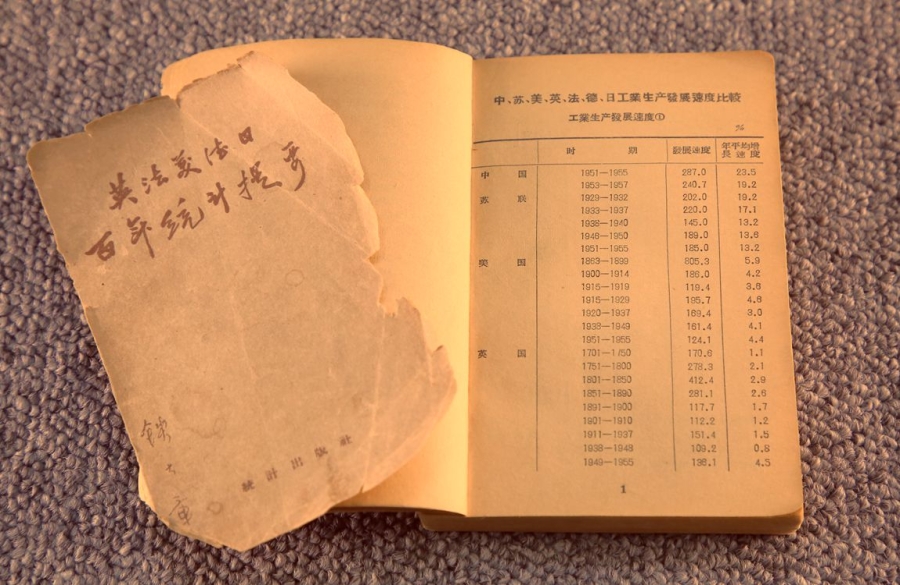 英法美德日
百年统计提要
統計出版社
中、苏、美、英、法、德、日工業生产發展速度比較
工業生产發展速度①
时 期 發展速度 年平均增長速度
中 国 1951—1955 287.0 23.5
1953—1957 240.7 19.2
苏 联 1929—1932 202.0 19.2
1933—1937 220.0 17.1
1938—1940 145.0 13.2
1946—1950 189.0 13.6
1951—1955 185.0 13.2
美 国 1863—1899 805.3 5.9
1900—1914 186.0 4.2
1915—1919 119.4 3.6
1915—1929 195.7 4.6
1920—1937 169.4 3.0
1938—1949 161.4 4.1
1951—1955 124.1 4.4
英 国 1701—1750 170.6 1.1
1751—1800 278.3 2.1
1801—1850 412.4 2.9
1851—1890 281.1 2.6
1891—1900 117.7 1.7
1901—1910 112.2 1.2
1911—1937 151.4 1.5
1938—1948 109.2 0.8
1949—1955 136.1 4.5
1